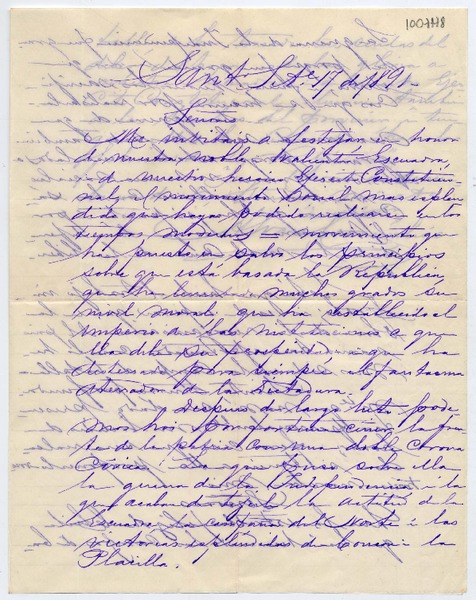 1007118
Sant.º Set.e 17 de 1891.
Señores
Me invitais a festejar en honor
de nuestra noble i valiente Escuadra,
de nuestro heroico Ejército Constitucio-
nal, el movimiento social mas esplen-
dido que haya podido realizarse en los
tiempos modernos — movimiento que
ha puesto en salvo los principios
sobre que está basada la República,
que ha levantado muchos grados su
nivel moral, que ha restablecido el
imperio de las instituciones a que
ella debe su prosperidad, i que ha
desterrado para siempre el fantasma
aterrador de la dictadura.
Despues de largo luto pode-
mos hoi ceñir la fren-
te de la patria con una doble corona
Cívica: la que puso sobre ella
la guerra de la Independencia i la
que acaban de tejerle la actitud de la
Escuadra la campaña del Norte i las
victorias espléndidas de Concon i la
Placilla.